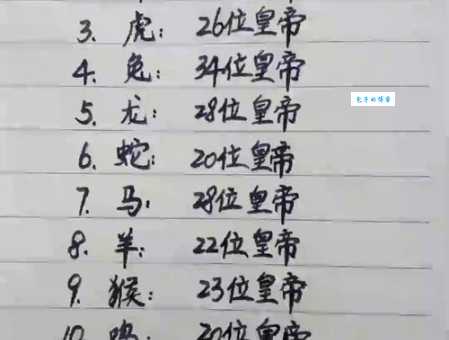 3. 虎: 26位皇帝
4. 兔: 34位皇帝
5. 龙: 28位皇帝
6. 蛇: 20位皇帝
7. 马: 28位皇帝
8. 羊: 22位皇帝
9. 猴: 23位皇帝
10. 鸡: 20位皇帝